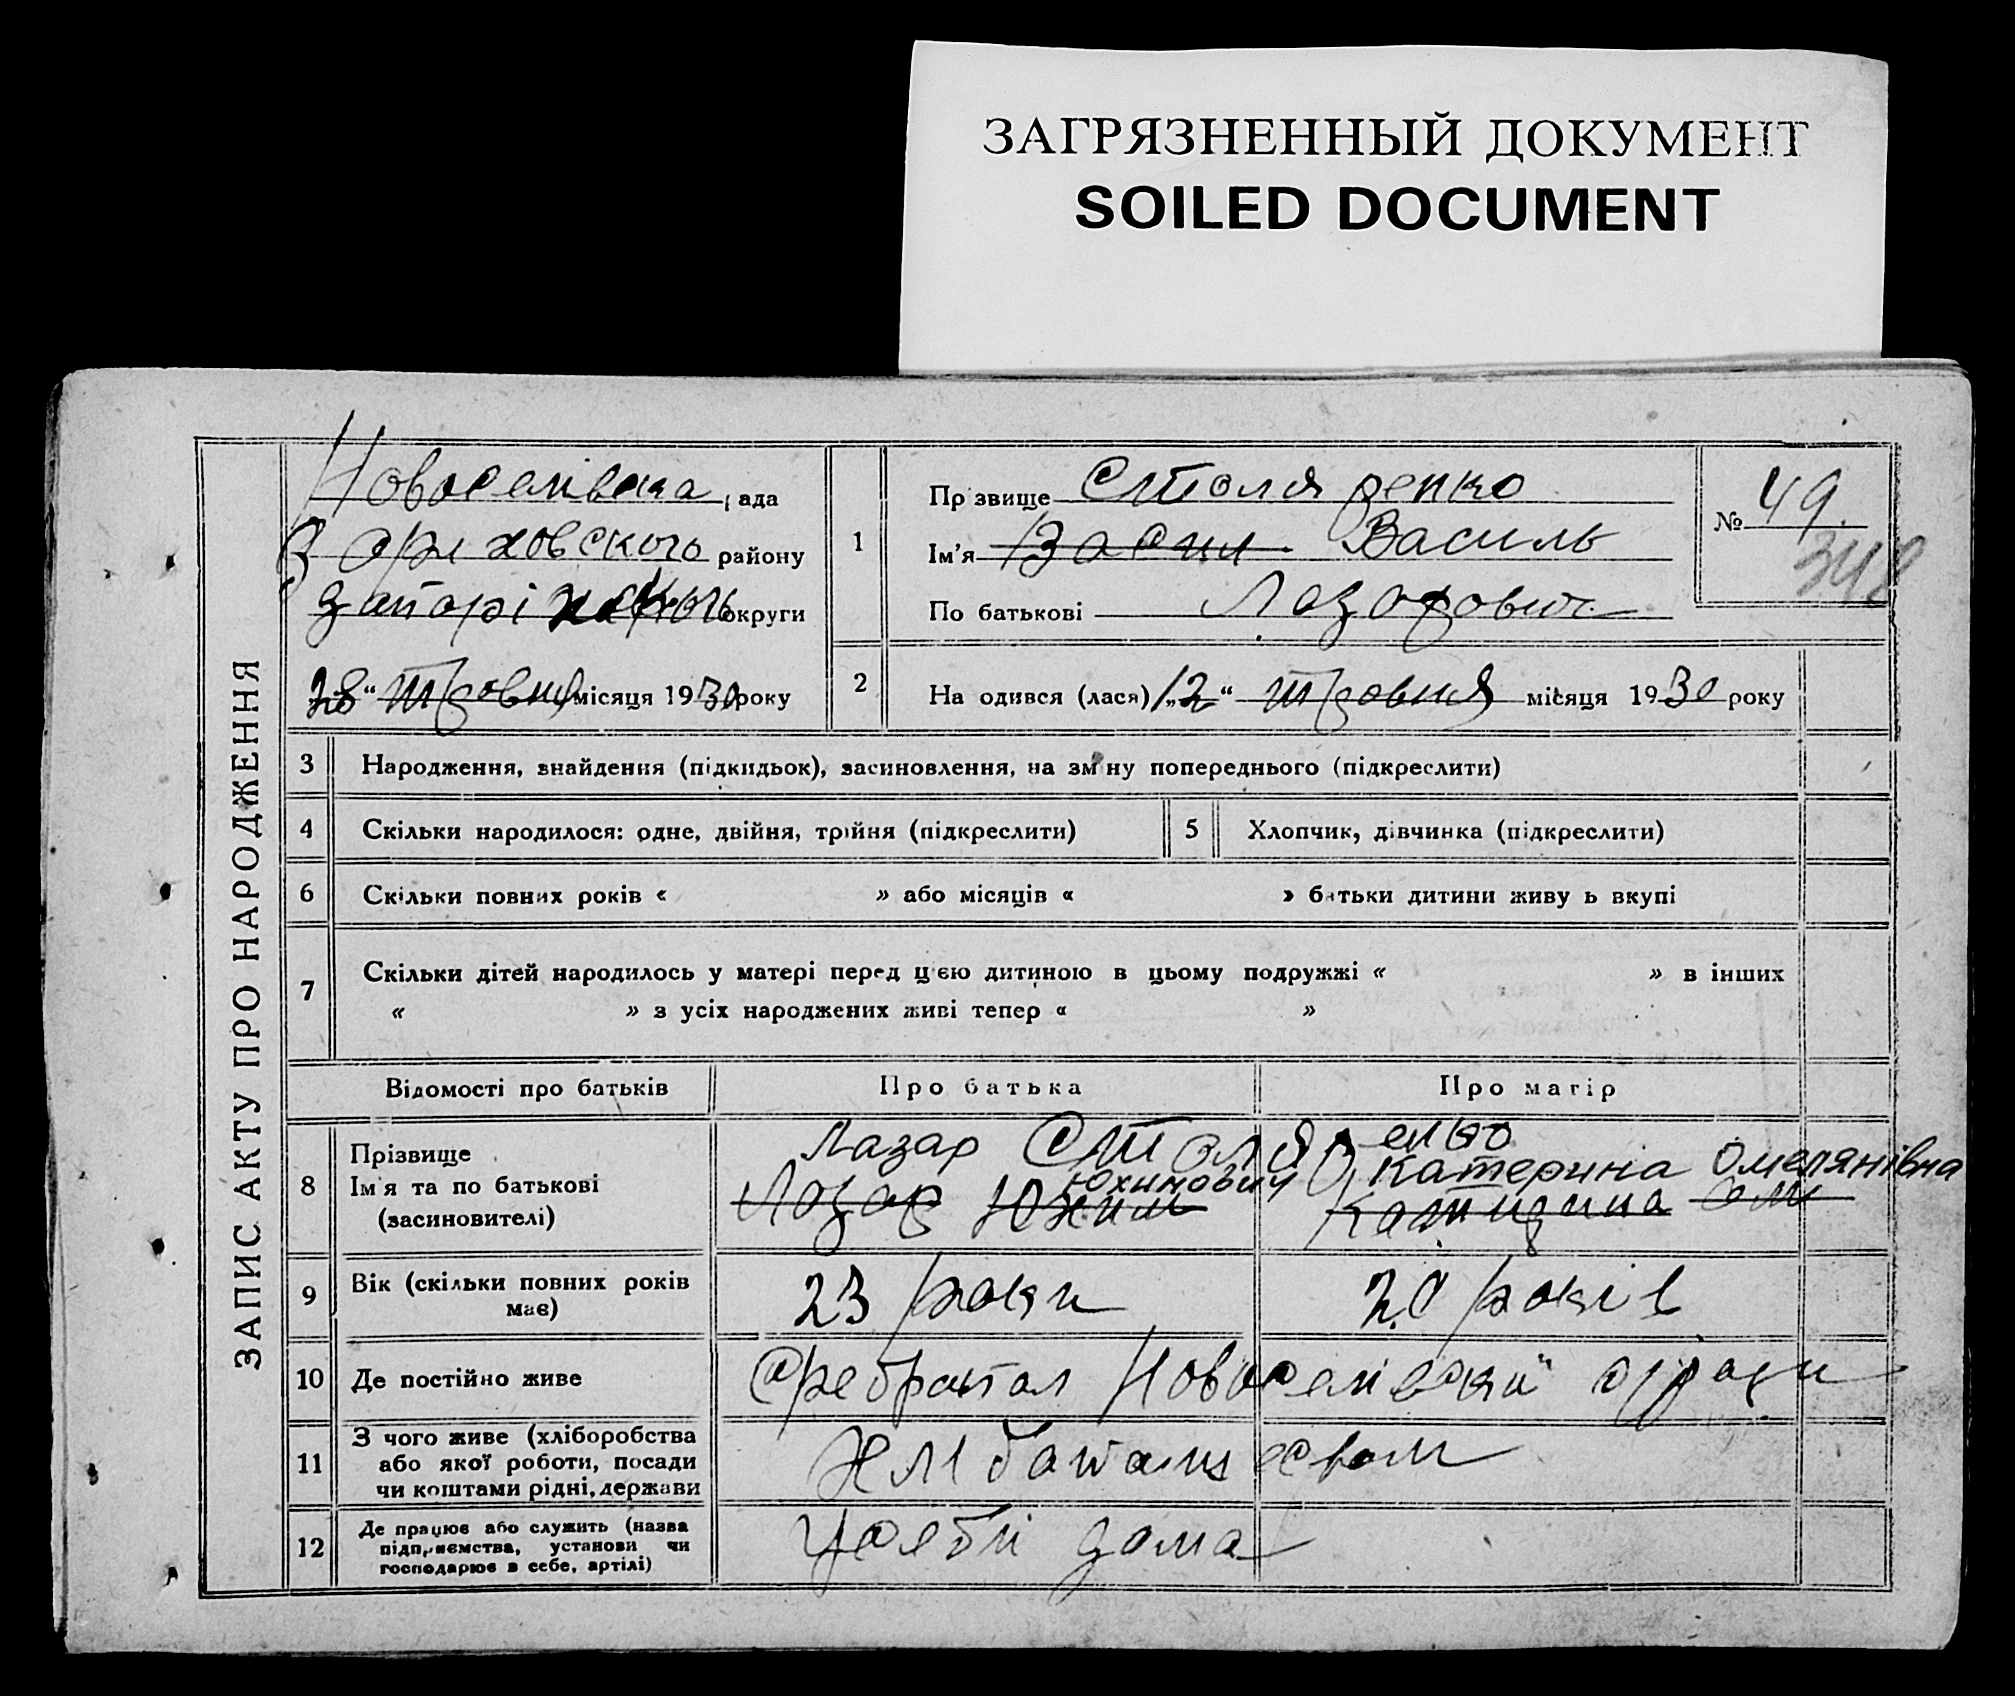 ЗАГРЯЗНЕННЫЙ ДОКУМЕНТ
SOILED DOCUMENT
ЗАПИС АКТУ ПРО НАРОДЖЕННЯ
Новоселівска рада
Оріховського району
Запоріжского округи
28 “ Травня місяця 1930 року
1
Прізвище Столяренко
Ім’я Васил Василь
По батькові Лазарович
№ 49.
2
На одився (лася) „12 “ травня місяця 1930 року
3 Народження, знайдення (підкидьок), засиновлення, на зміну попереднього (підкреслити)
4 Скільки народилося: одне, двійня, трійня (підкреслити)
5 Хлопчик, дівчинка (підкреслити)
6 Скільки повних років « » або місяців « » батьки дитини живу ь вкупі
7 Скільки дітей народилось у матері перед цією дитиною в цьому подружжі « » в інших
« » з усіх народжених живі тепер « »
Відомості про батьків Про батька Про матір
8 Прізвище
Ім’я та по батькові
(засиновителі)
Лазар Столяренко
Юхимович Катерина Омелянівна
Лазар Юхим Катирина Оми
9 Вік (скільки повних років
має)
23 роки 20 років
10 Де постійно живе
Новоселівский с/ради
11 З чого живе (хліборобства
або якої роботи, посади
чи коштами рідні, держави
12 Де працює або служить (назва
підприємства, установи чи
господарює в себе, артілі)
у себи дома